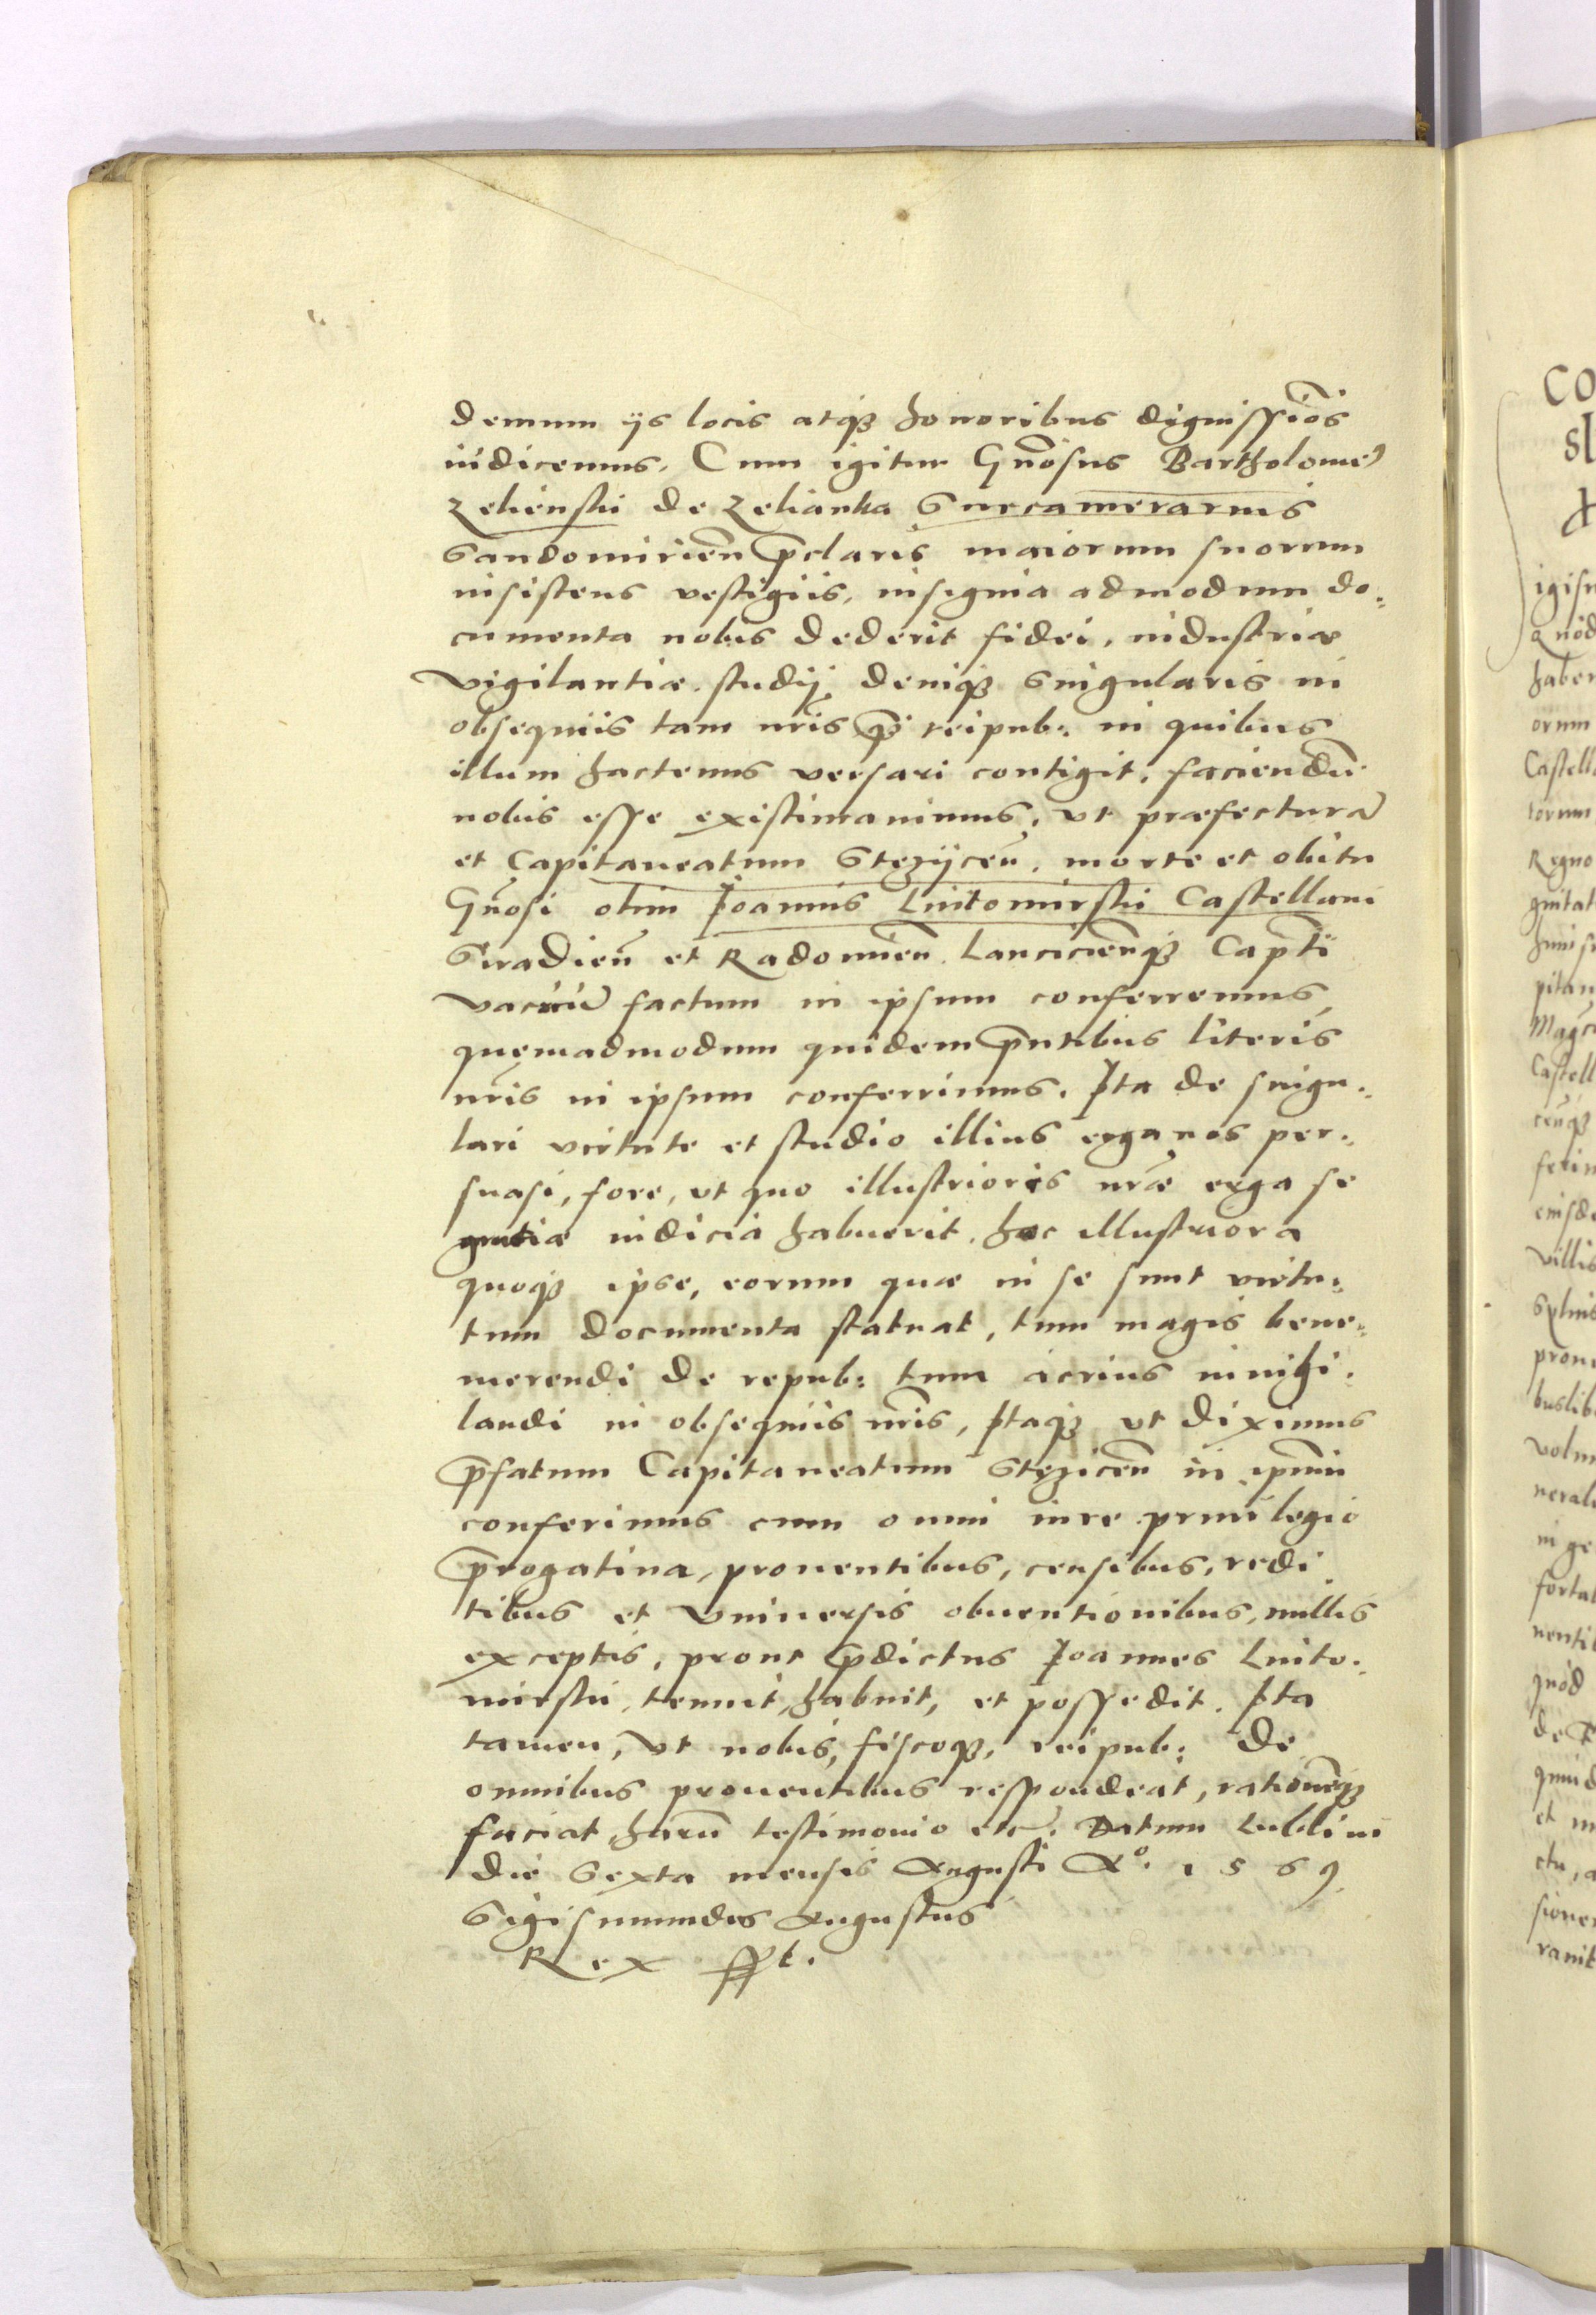 demum ijs locis atq₃ honoribus digniſſiōs
iudicemus. Cum igitur Gn̄osus Bartholome⁹
Zelienski de Zelianka Succamerarius
Sandomirien̄ p̄claris maiorum suorum
insistens vestigiis, insignia admodum do:
cumenta nobis dederit fidei, industriæ
vigilantiæ. studij deniq₃ singularis in
obsequiis tam nr̄is q̄₃ reipub: in quibus
illum hactenus versari contigit. faciendū
nobis esse existimauimus, vt præfecturā
et Capitaneatum Stezijcen̄. morte et obitu
Gn̄osi olim Joannis Lutomirski Castellani
Siradien̄ et Radomien̄ Lancicien̄q₃ Cap̄ti
vacuū factum in ipsum conferremus,
quęmadmodum quidem p̄ntibus literis
nr̄is in ipsum conferrimus. Ita de singu:
lari virtute et studio illius erga nos per:
suasi, fore, vt quo illustrioris nr̄æ erga se
gratiæ indicia habuerit, hoc illustriora
quoq₃ ipse, eorum quæ in se sunt virtu:
tum documenta statuat, tum magis bene:
merendi de repub: tum acrius inuigi:
landi in obsequiis nr̄is, Itaq₃ vt diximus
p̄fatum Capitaneatum Stęzicen̄ in ip̄um
conferimus cum omni iure priuilegio
p̄rogatiua, prouentibus, censibus, redi
tibus et vniuersis obuentionibus, nullis
exceptis, prout p̄dictus Joannes Luto:
mirski, tenuit, habuit, et possedit. Ita
tamen, vt nobis, fiscoq₃, reipub: de
omnibus prouentibus respondeat, rationēq₃
faciat, harū testimonio etc. Datum Lublini
die Sexta mensis Augusti A°. 1569.
Sigismundus Augustus
Rex ſſt.